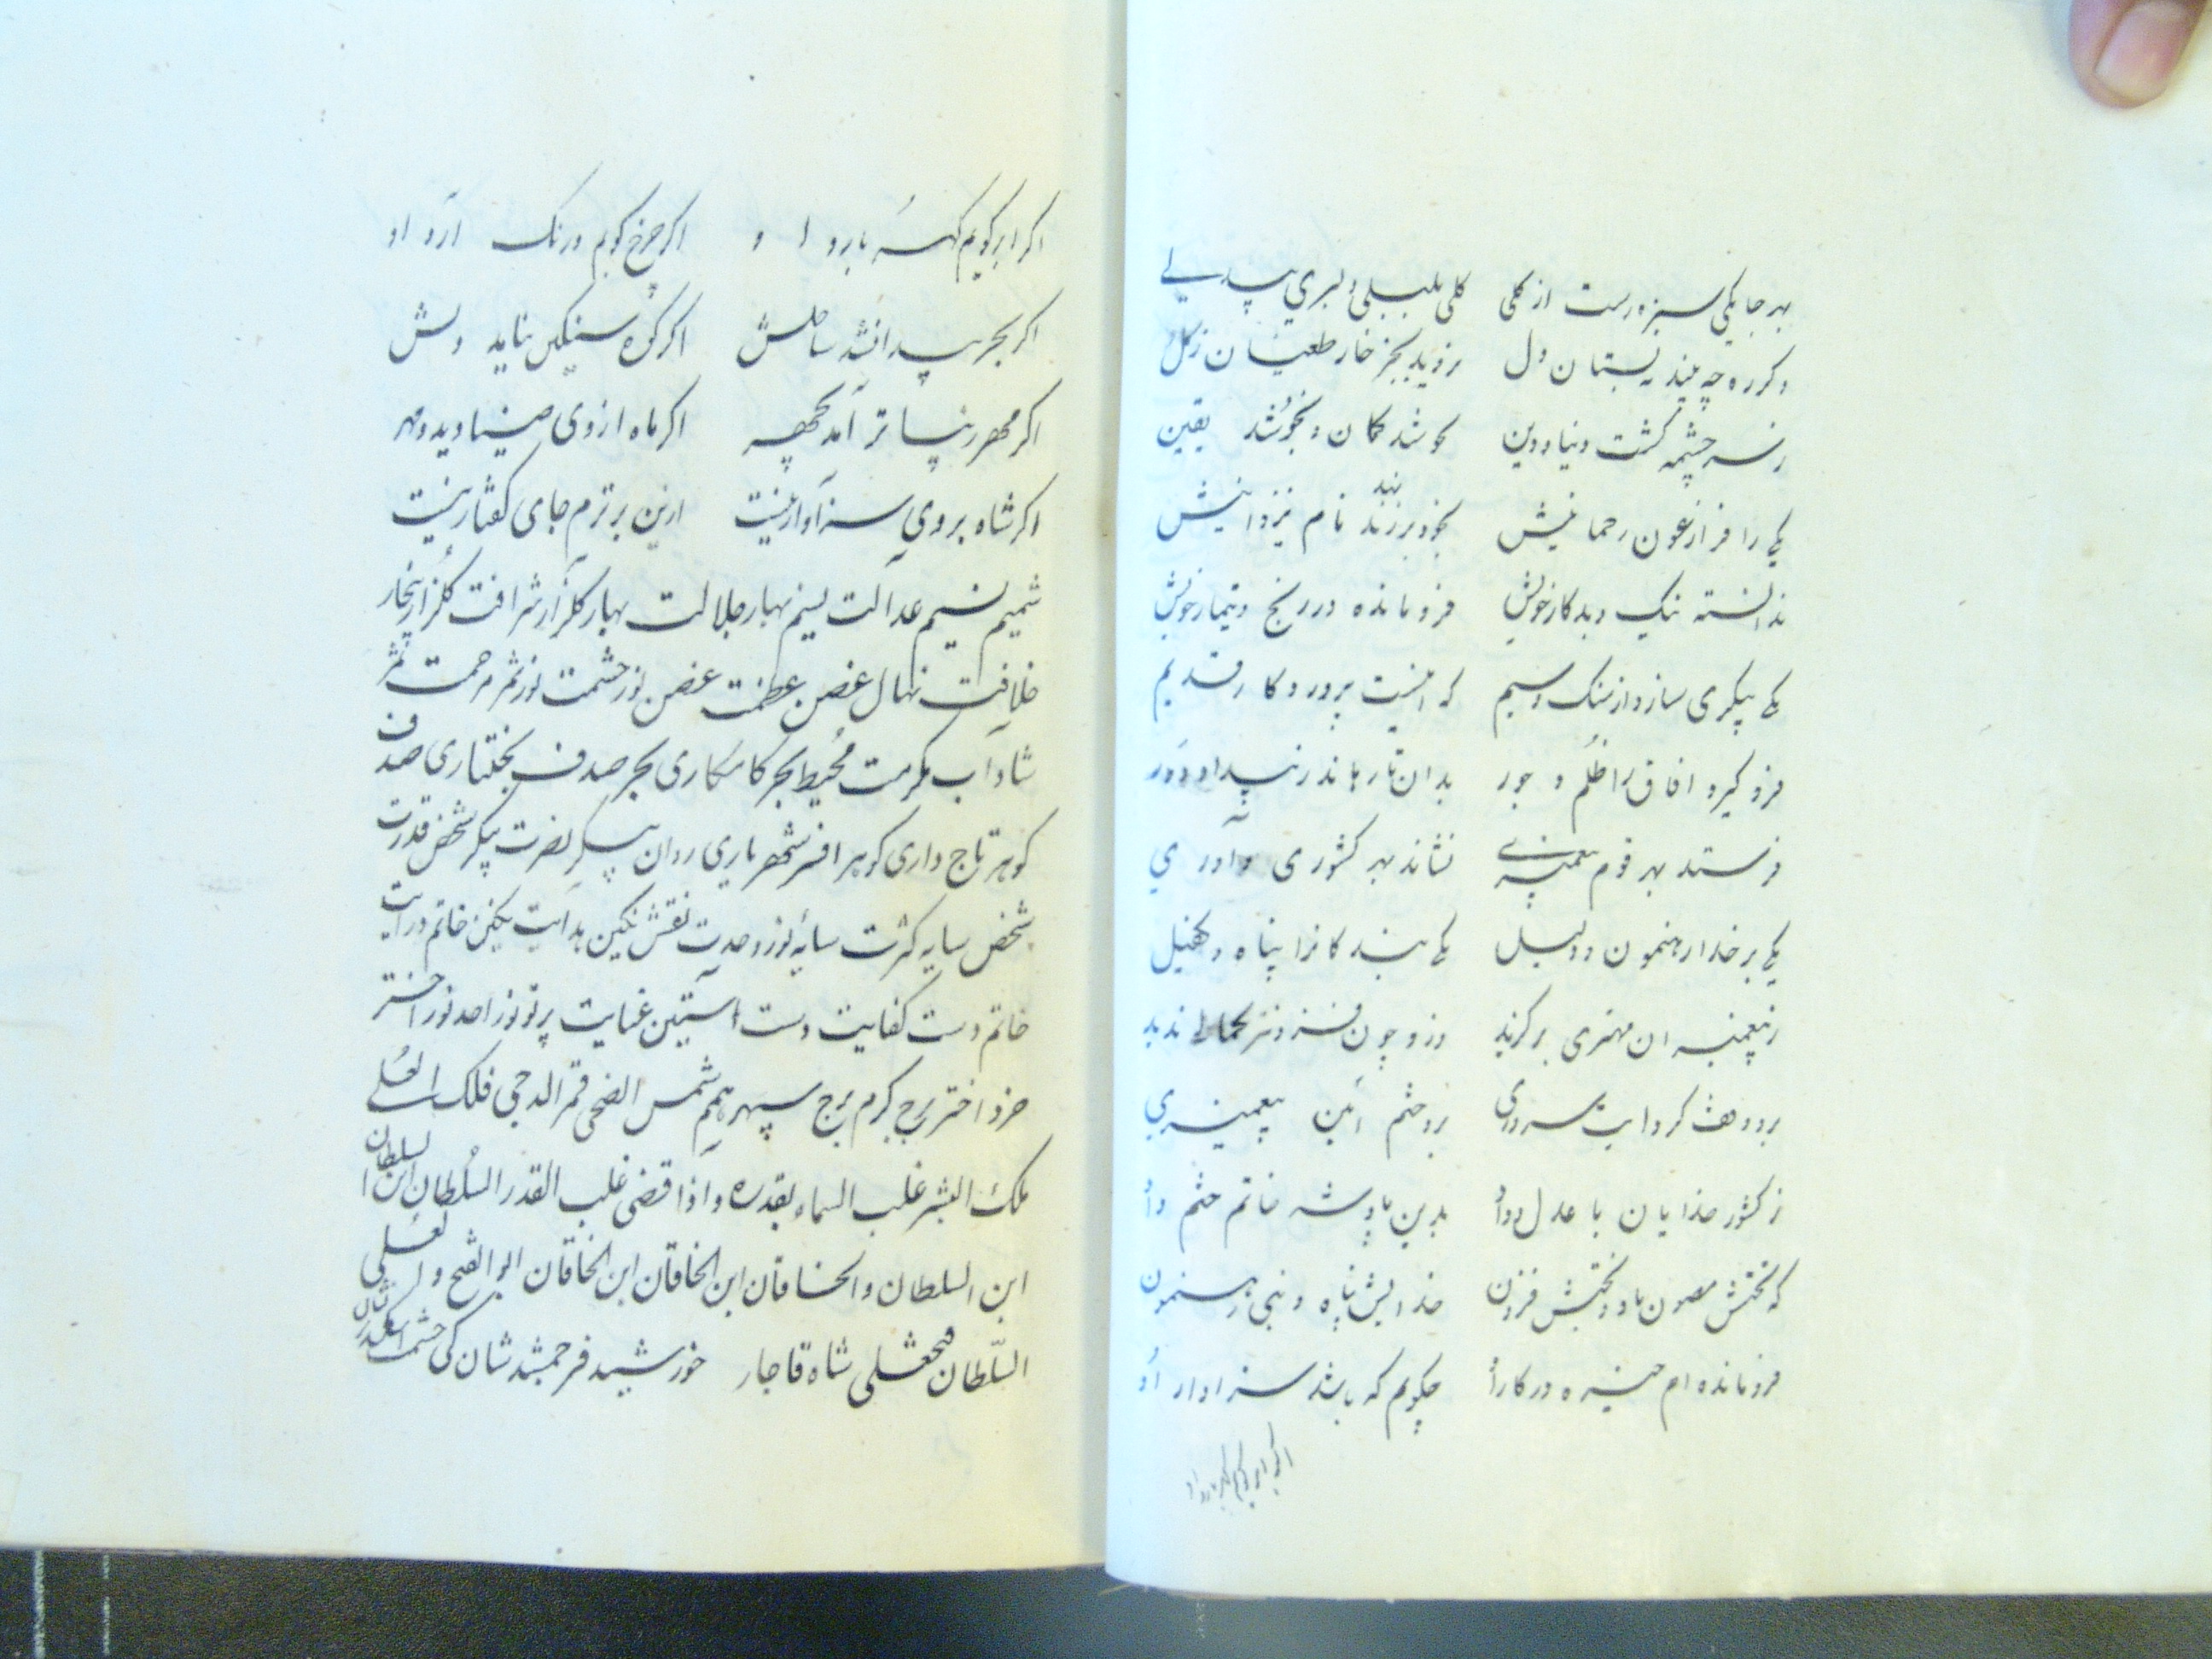 بهر جا یکی سبزه رست از کلی کلی بلبلی دلبری پیدلی
دکر ره چه بیند بستان دل نروید بجز خار طغیان زکل
سرچشمه کشت دنیا و دین نجوشد کمان و نجوشد یقین
یکی را فراز عون رحمانیش بخود بر نهد نام یزدانیش
ندانسته نیک و بد کار خویش فرو مانده در رنج و تیمار خویش
یکی پیکری سازد از سنک و سیم که اینست پروردکار قدیم
فرو کیرد افاق را ظلم و جور بدان تا رهاند ز بیداد دور
فرستد بهر قوم پیغمبری نشاند بهر کشوری داوری
یکی بر خدا رهنمون و دلیل یکی بندکانرا پناه و کفیل
ز پیغمبران مهتری برکزید وزو چون فزونتر کمالی ندید
بدو وقف کرد ایت سروری برو ختم آئین پیغمبری
ز کشور خدایان با عدل و داد بدین پادشه خاتم ختم داد
که تختش مصون باد و بختش فزون خدایش پناه و نبی رهنمون
فرو مانده ام خیره در کار او چکویم که باشد سزاوار او
اکر ابر کویم کهر بارد او
اکر ابر کویم کهر بارد او اکر چرخ کویم درنک ارد او
اکر بحر پیدا نشد ساحلش اکر کوه سنکین نباید دلش
اکر مهر زیباتر آمد بچهر اکر ماه از وی ضیا دید و مهر
اکر شاه بروی سزاوار نیست ازین برترم جای کفتار نیست
شمیم نسیم عدالت نسیم بهار جلالت بهار کلزار شرافت کلزار بیخار
خلافت نهال غصن عظمت غصن نور حشمت نور ثمر مرحمت ثمر
شاداب مکرمت محیط بحر کامکاری بحر صدف بختیاری صدف
کوهر تاج داری کوهر افسر شهریاری روان پیکر نصرت پیکر شخص قدرت
شخص سایه کثرت سایه نور وحدت نقش نکین هدایت نکین خاتم درایت
خاتم دست کفایت دست آستین عنایت پرتو نور احد نور اختر
خرد اختر برج کرم برج سپهر همم شمس الضحی قمر الدجی فلک العلی
ملک البشر غلب السماء بقدره و اذا قضی غلب القدر السلطان ابن السلطان
ابن السلطان والخاقان ابن الخاقان ابن الخاقان ابو الفتح و العلی
السلطان فتحعلی شاه قاجار خورشید فر جمشید شان کی حشمت اسکندر نشان